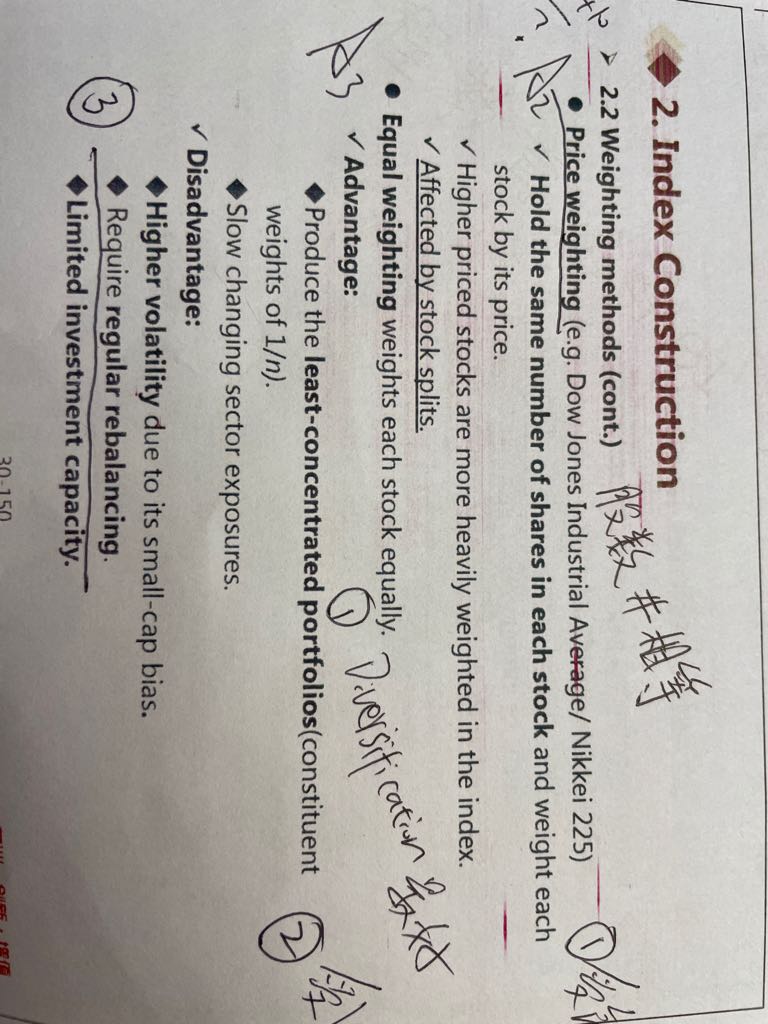 2. Index Construction
➢ 2.2 Weighting methods (cont.) 股数 # 相等
A2
● Price weighting (e.g. Dow Jones Industrial Average/ Nikkei 225)
①
✓ Hold the same number of shares in each stock and weight each
stock by its price.
✓ Higher priced stocks are more heavily weighted in the index.
✓ Affected by stock splits.
A3
● Equal weighting weights each stock equally. Diversification 最好
✓ Advantage: ①
◆Produce the least-concentrated portfolios(constituent
weights of 1/n). ②
◆Slow changing sector exposures.
✓ Disadvantage:
◆Higher volatility due to its small-cap bias.
◆ Require regular rebalancing.
③ ◆Limited investment capacity.
30-150